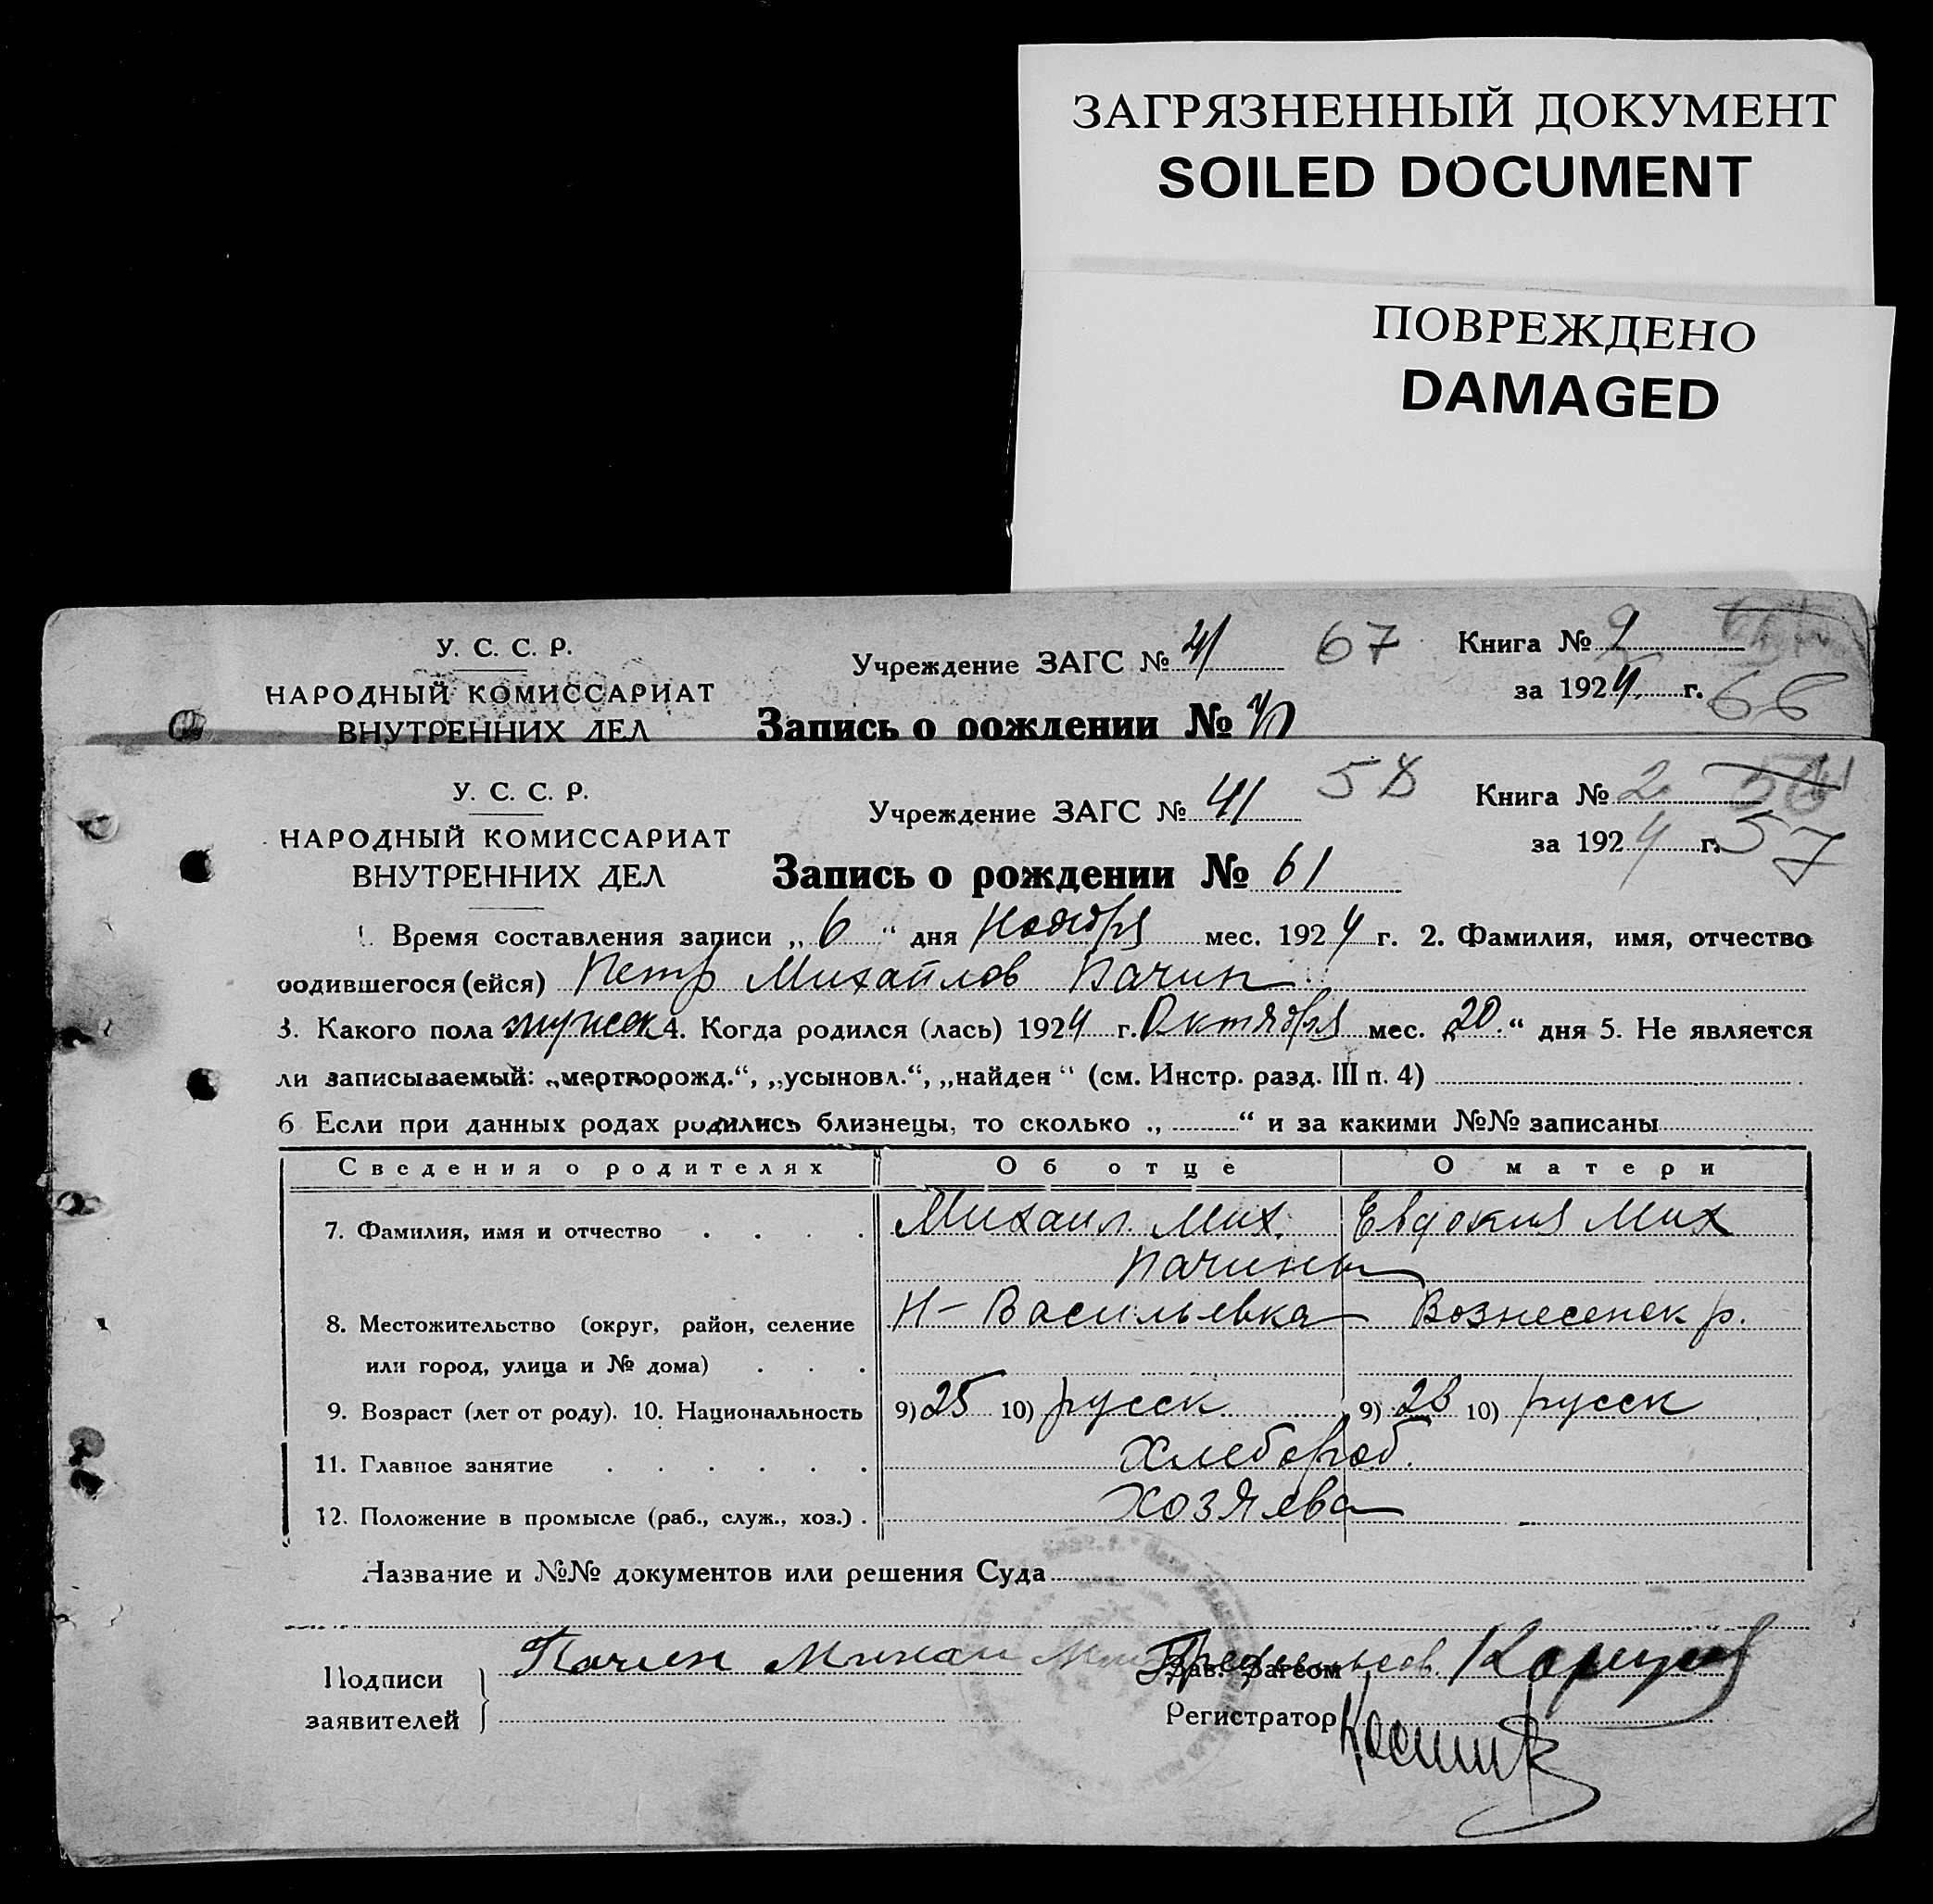 ЗАГРЯЗНЕННЫЙ ДОКУМЕНТ
SOILED DOCUMENT
ПОВРЕЖДЕНО
DAMAGED
У. С. С. Р.
НАРОДНЫЙ КОМИССАРИАТ
ВНУТРЕННИХ ДЕЛ
Учреждение ЗАГС № 41 67
Запись о рождении №
Книга № 2
за 1924 г. 66
У. С. С. Р.
НАРОДНЫЙ КОМИССАРИАТ
ВНУТРЕННИХ ДЕЛ
Учреждение ЗАГС № 41 58
Запись о рождении № 61
Книга № 2
за 1924 г. 57
1. Время составления записи „ 6 “ дня Ноября мес. 1924 г. 2. Фамилия, имя, отчество
родившегося (ейся) Петр Михайлов Пачин
3. Какого пола мужск 4. Когда родился (лась) 1924 г. Октября мес. „20“ дня 5. Не является
ли записываемый: „мертворожд.“, „усыновл.“, „найден“ (см. Инстр. разд. III п. 4)
6 Если при данных родах родились близнецы, то сколько „ “ и за какими №№ записаны
Сведения о родителях Об отце О матери
7. Фамилия, имя и отчество Михаил Мих. Евдокия Мих
Пачины
8. Местожительство (округ, район, селение Н-Васильевка Вознесенск р.
или город, улица и № дома)
9. Возраст (лет от роду). 10. Национальность 9) 25 10) русск 9) 23 10) русск
11. Главное занятие Хлебороб.
12. Положение в промысле (раб., служ., хоз.) хозяева
Название и №№ документов или решения Суда
Подписи заявителей Пачин Михаил
Зав. Загсом
Регистратор